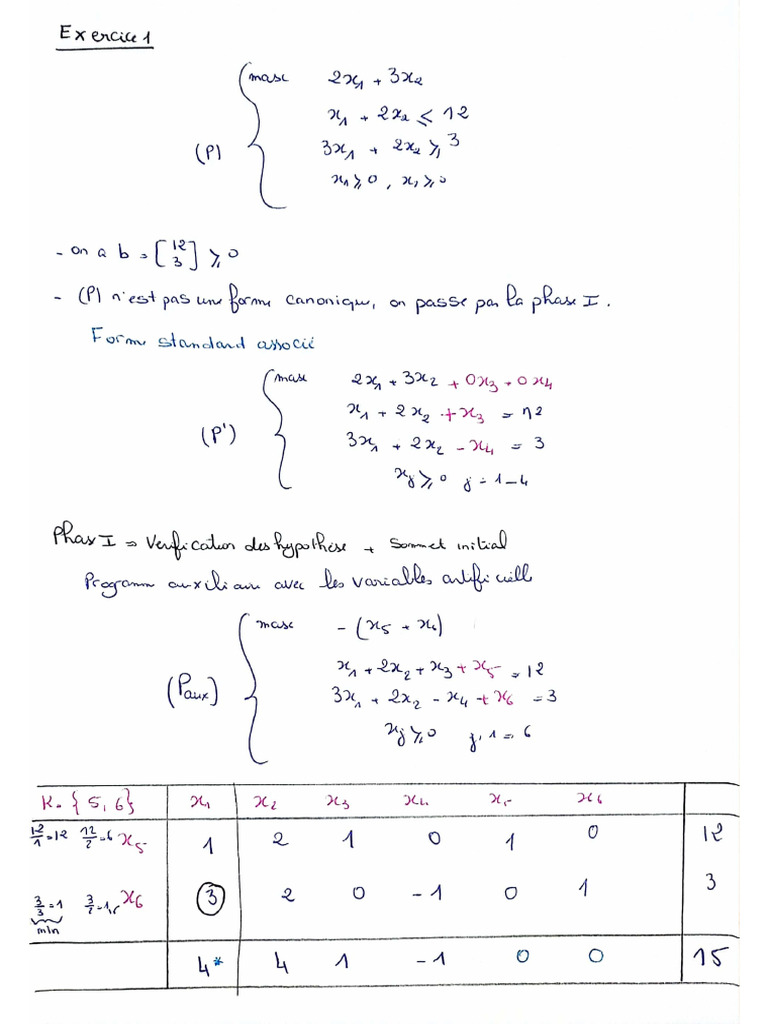 Exercice 1
(P) { max 2x₁ + 3x₂
x₁ + 2x₂ ≤ 12
3x₁ + 2x₂ ≥ 3
x₁ ≥ 0, x₂ ≥ 0
- on a b = [12 3] ≥ 0
- (P) n'est pas une forme canonique, on passe par la phase I.
Forme standard associé
(P') { max 2x₁ + 3x₂ + 0x₃ + 0x₄
x₁ + 2x₂ + x₃ = 12
3x₁ + 2x₂ - x₄ = 3
xⱼ ≥ 0 j = 1-4
Phase I = Verification des hypothèse + Sommet initial
Programm auxiliair avec les variables artificiell
(Paux) { max - (x₅ + x₆)
x₁ + 2x₂ + x₃ + x₅ = 12
3x₁ + 2x₂ - x₄ + x₆ = 3
xⱼ ≥ 0 j, 1 = 6
K = {5, 6} x₁ x₂ x₃ x₄ x₅ x₆
12/1 = 12 12/2 = 6 x₅ 1 2 1 0 1 0 12
3/3 = 1 3/2 = 1,5 x₆ 3 2 0 -1 0 1 3
min
4* 4 1 -1 0 0 15